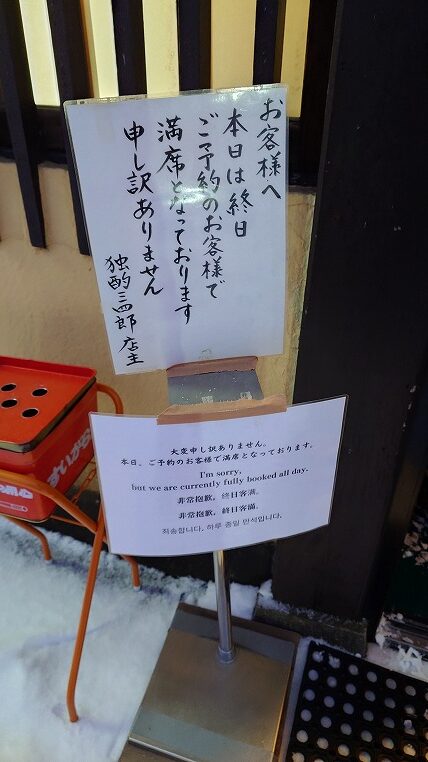 お客様へ
本日は終日
ご予約のお客様で
満席となっております
申し訳ありません
独酌三四郎 店主
大変申し訳ありません。
本日、ご予約のお客様で満席となっております。
I'm sorry,
but we are currently fully booked all day.
非常抱歉，终日客满。
非常抱歉，終日客滿。
죄송합니다. 하루 종일 만석입니다.
すいがら入れ